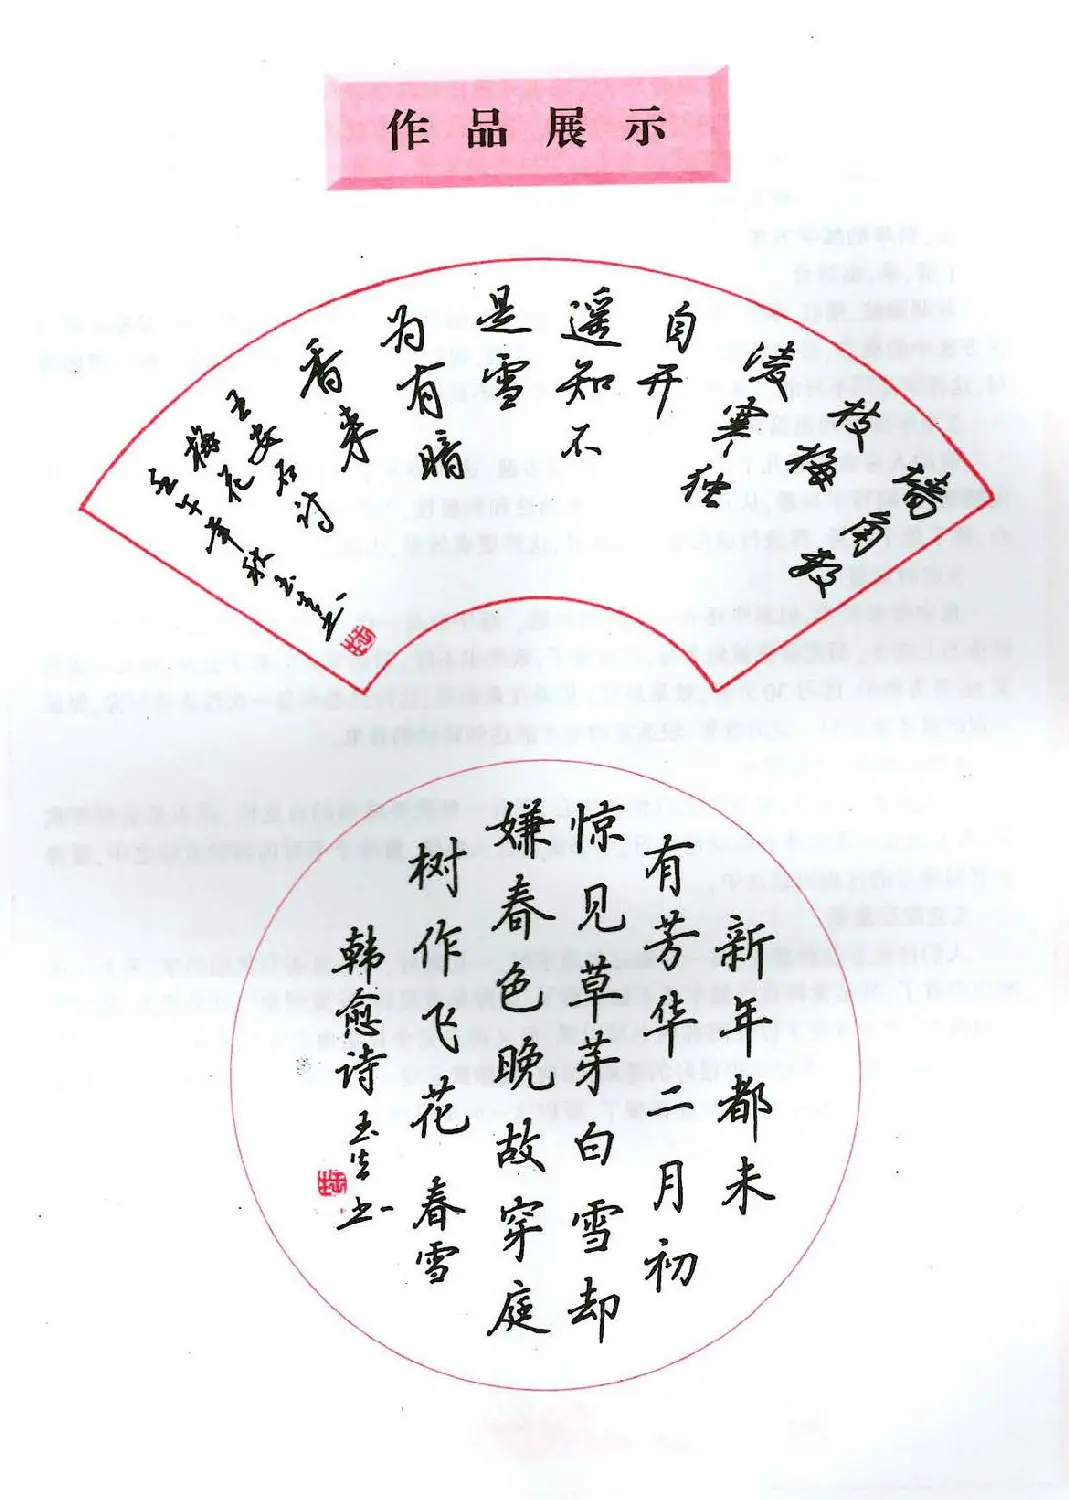 作品展示
枝梅
凌寒独
自开
遥知不
是雪
为有暗
香来
王安石诗
梅花
壬午年秋玉生书
新年都未
有芳华二月初
惊见草芽白雪却
嫌春色晚故穿庭
树作飞花 春雪
韩愈诗 玉生书